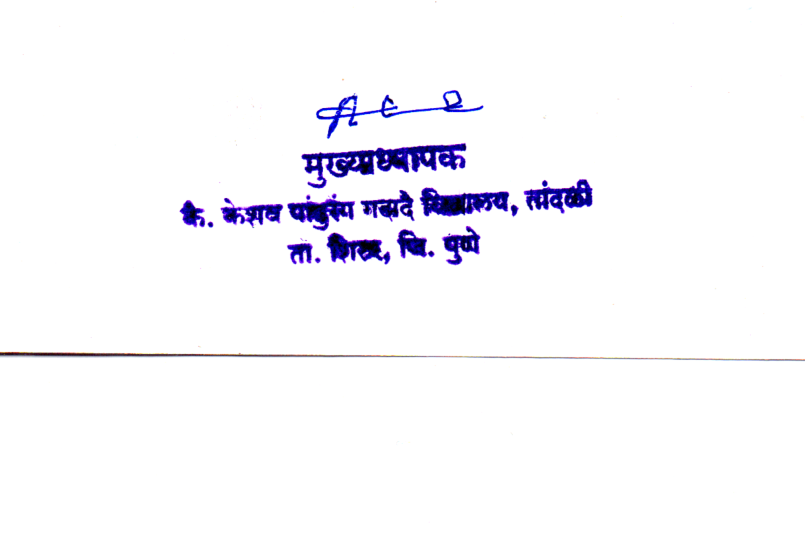 मुख्याध्यापक
कै. केशव पांडुरंग गदादे विद्यालय, तांदळी
ता. शिरूर, जि. पुणे